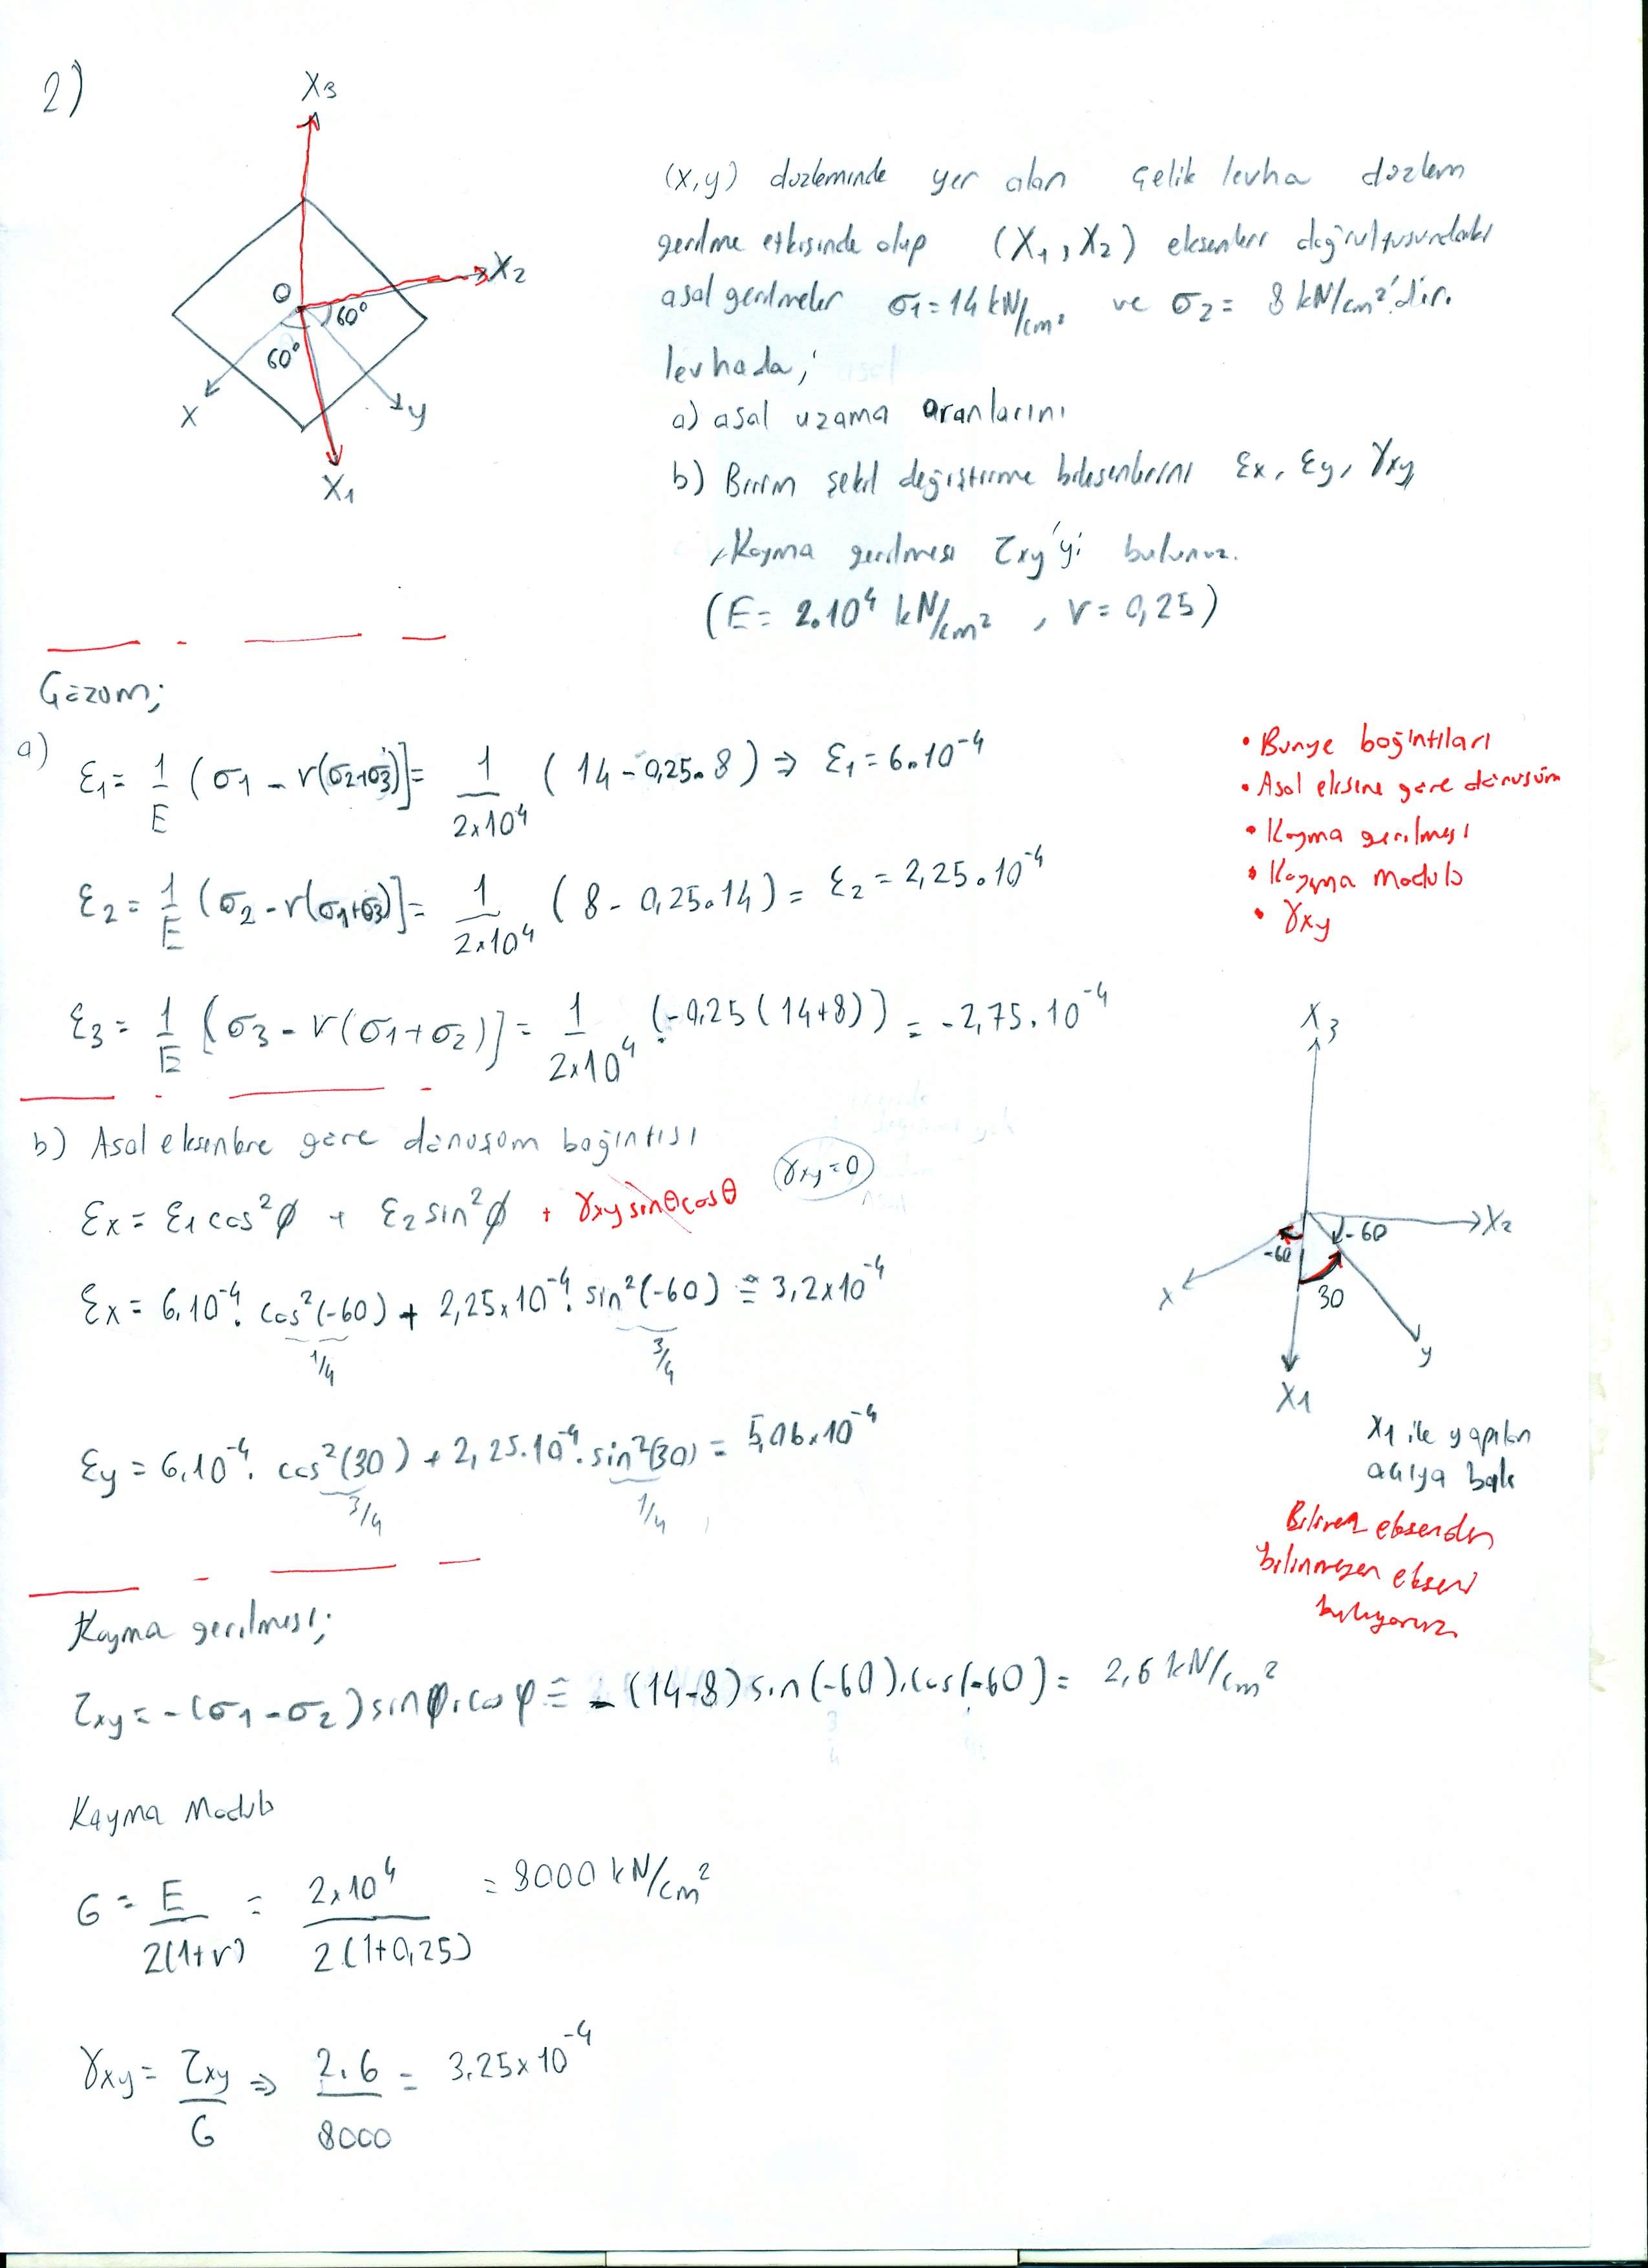 2)
X3
X2
O
60°
60°
X
y
X1
(x,y) düzleminde yer alan çelik levha düzlem
gerilme etkisinde olup (X1, X2) eksenleri doğrultusundaki
asal gerilmeler σ1=14 kN/cm² ve σ2= 8 kN/cm²'dir.
levhada;
a) asal uzama oranlarını
b) Birim şekil değiştirme bileşenlerini εx, εy, γxy,
Kayma gerilmesi τxy'yi bulunuz.
(E= 2.10⁴ kN/cm² , ν= 0,25)
Çözüm;
a)
ε1= 1/E (σ1 - ν(σ2+σ3)]= 1/2x10⁴ (14-0,25.8) ⇒ ε1=6.10⁻⁴
ε2= 1/E (σ2-ν(σ1+σ3)]= 1/2x10⁴ (8- 0,25.14)= ε2=2,25.10⁻⁴
ε3= 1/E [σ3-ν(σ1+σ2)]= 1/2x10⁴ . (-0,25(14+8)) = -2,75.10⁻⁴
• Bünye bağıntıları
• Asal eksene göre dönüşüm
• Kayma gerilmesi
• Kayma modülü
• γxy
b) Asal eksenlere göre dönüşüm bağıntısı
γxy=0
εx= ε1cos²φ + ε2sin²φ + γxysinθcosθ
εx= 6.10⁻⁴. cos²(-60) + 2,25x10⁻⁴. sin²(-60) ≅ 3,2x10⁻⁴
1/4
3/4
εy= 6.10⁻⁴. cos²(30) + 2,25.10⁻⁴. sin²(30) = 5,06x10⁻⁴
3/4
1/4
X3
X2
-60
-60
30
x
y
X1
X1 ile yapılan
açıya bak
Bilinen eksenden
bilinmeyen ekseni
buluyoruz.
Kayma gerilmesi;
τxy= -(σ1-σ2)sinφ.cosφ = -(14-8)sin(-60).cos(-60)= 2,6 kN/cm²
Kayma Modülü
G = E/2(1+ν) = 2x10⁴/2(1+0,25) = 8000 kN/cm²
γxy= τxy/G ⇒ 2.6/8000 = 3.25x10⁻⁴